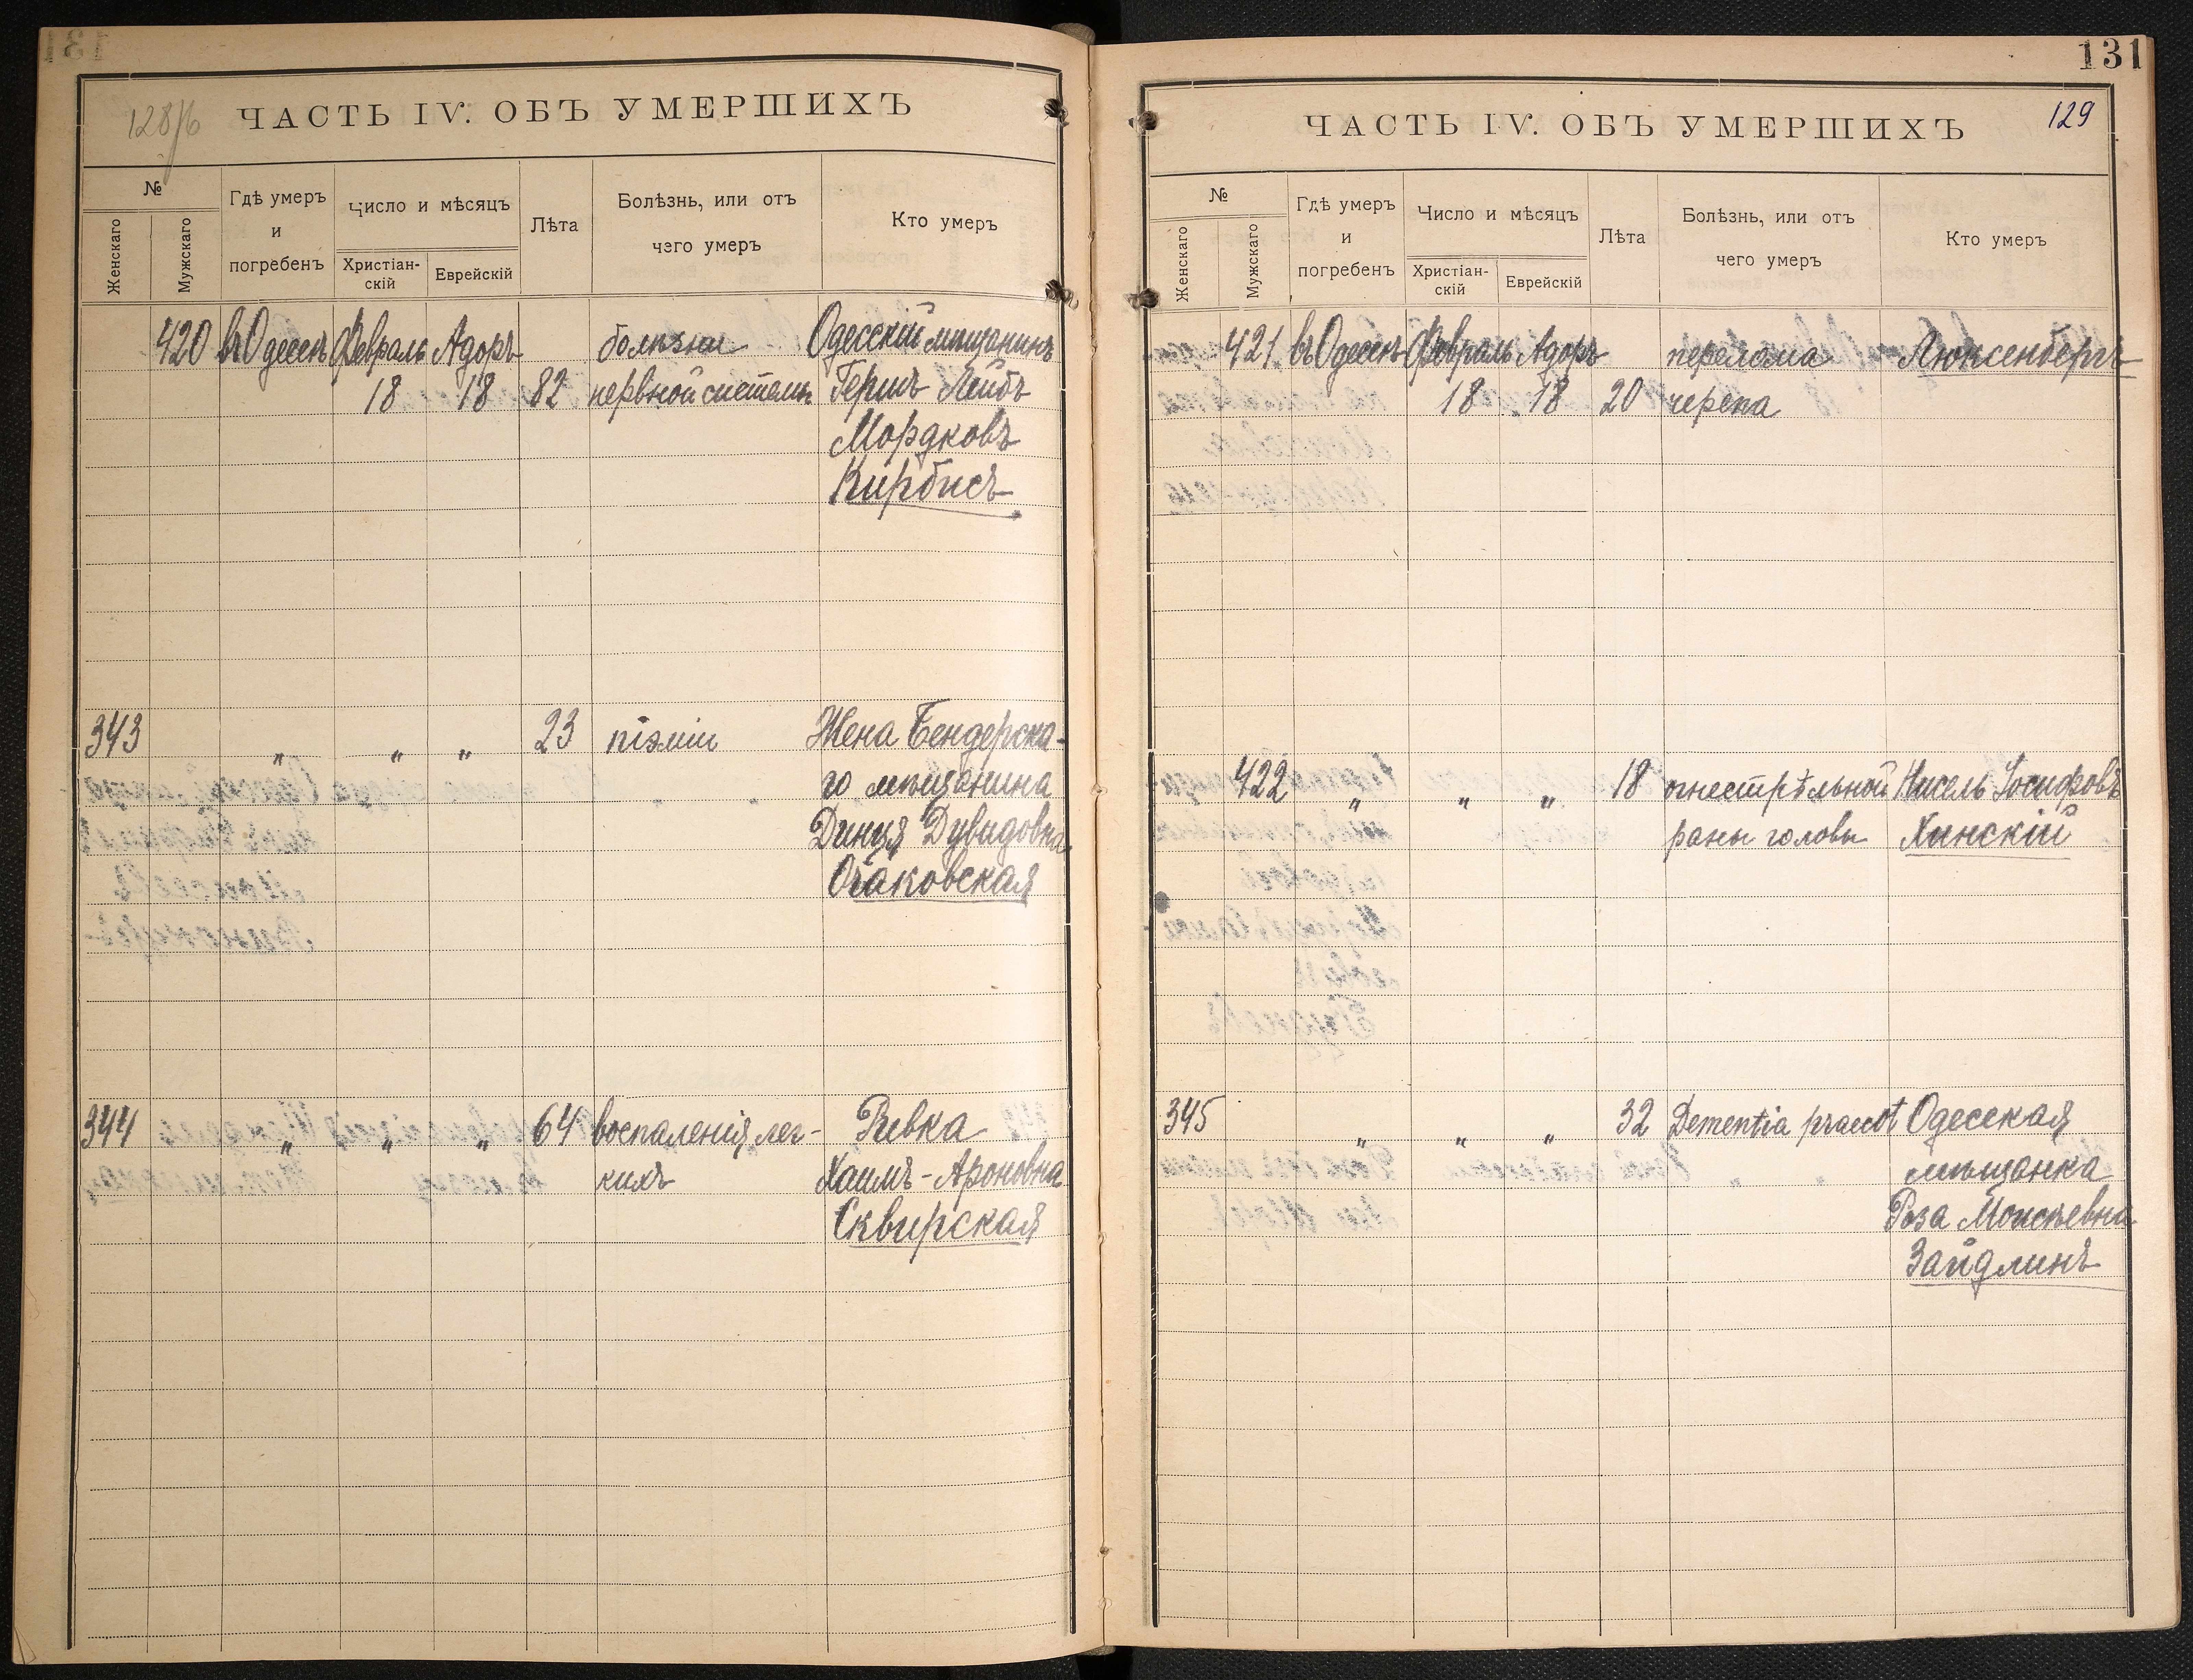 128/б
ЧАСТЬ IV. ОБЪ УМЕРШИХЪ
№
Женскаго
Мужскаго
Гдѣ умеръ
и
погребенъ
Число и мѣсяцъ
Христіан-
скій
Еврейскій
Лѣта
Болѣзнь, или отъ
чего умеръ
Кто умеръ
420 въ Одессѣ Февраль Адоръ болѣзни Одесскій мѣщанинъ
18 18 82 нервной системы Гершъ Лейбъ
Мордковъ
Кирбисъ
343 " " " 23 піэміи Жена Бендерска-
го мѣщанина
Динця Дувидовна
Очаковская
344 " " " 64 воспаленія лег- Ривка
кихъ Хаимъ-Ароновна
Сквирская
131
ЧАСТЬ IV. ОБЪ УМЕРШИХЪ
129
№
Женскаго
Мужскаго
Гдѣ умеръ
и
погребенъ
Число и мѣсяцъ
Христіан-
скій
Еврейскій
Лѣта
Болѣзнь, или отъ
чего умеръ
Кто умеръ
421 въ Одессѣ Февраль Адоръ перелома Люксенбергъ
18 18 20 черепа
422 " " " 18 огнестрѣльной Нисель Іосифовъ
раны головы Хинскій
345 " " " 32 Dementia praecot Одесская
мѣщанка
Роза Моисѣевна
Зайдлинъ